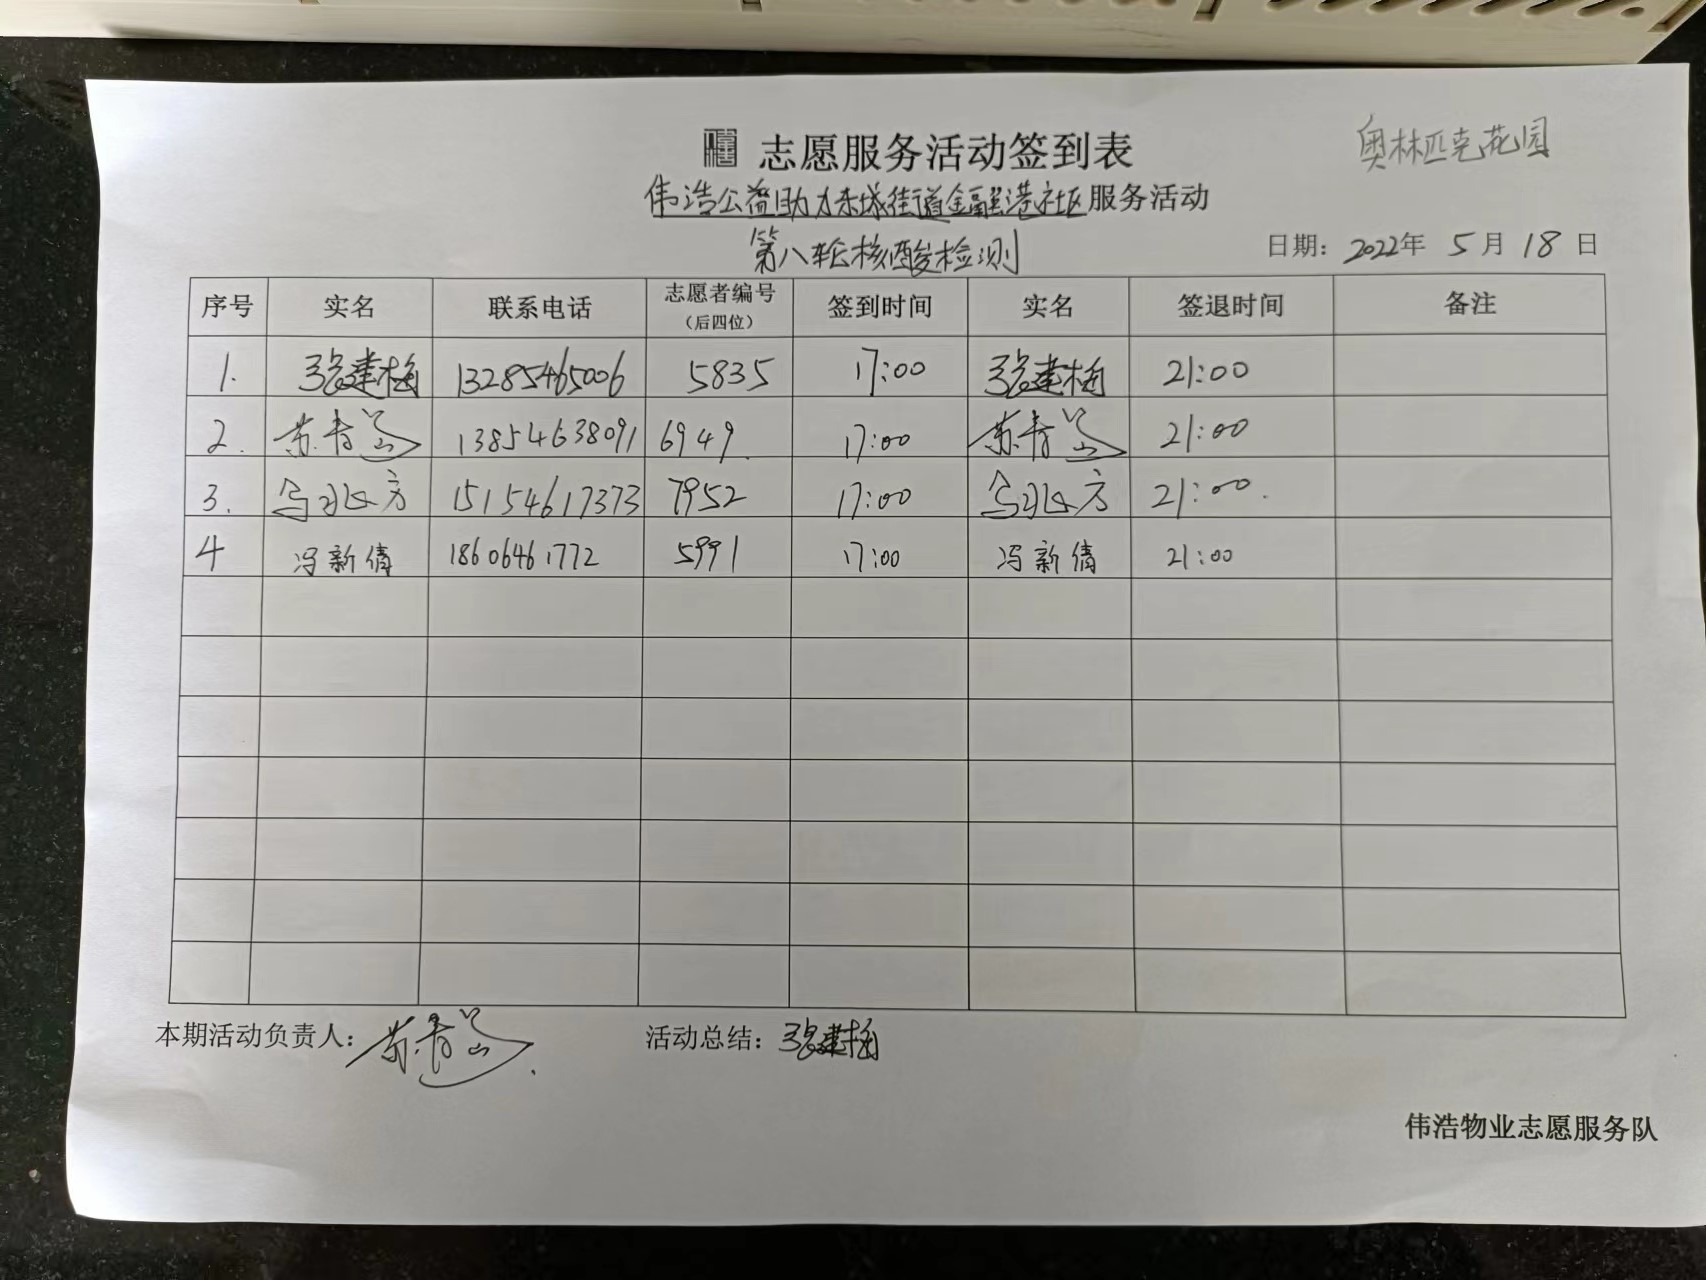 志愿服务活动签到表
奥林匹克花园
伟浩公益助力东城街道金融港社区服务活动
第八轮核酸检测
日期：2022年 5月 18日
序号 实名 联系电话 志愿者编号（后四位） 签到时间 实名 签退时间 备注
1. 张建梅 13285465006 5835 17:00 张建梅 21:00
2. 苏青 13854638091 6949. 17:00 苏青 21:00
3. 方 15154617373 7952 17:00 方 21:00.
4 冯新倩 18606461772 5991 17:00 冯新倩 21:00
本期活动负责人：苏青 活动总结：张建梅
伟浩物业志愿服务队